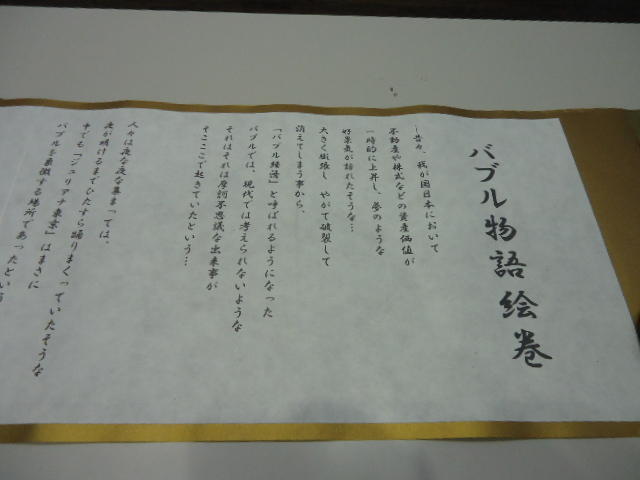 バブル物語絵巻
―昔々、我が国日本において
不動産や株式などの資産価値が
一時的に上昇し、夢のような
好景気が訪れたそうな…
大きく膨張し やがて破裂して
消えてしまう事から、
「バブル経済」と呼ばれるようになった
バブルでは、現代では考えられないような
それはそれは摩訶不思議な出来事が
そこここで起きていたという…
人々は夜な夜な集まっては、
夜が明けるまでひたすら踊りまくっていたそうな
中でも「ジュリアナ東京」はまさに
バブルを象徴する場所であったという